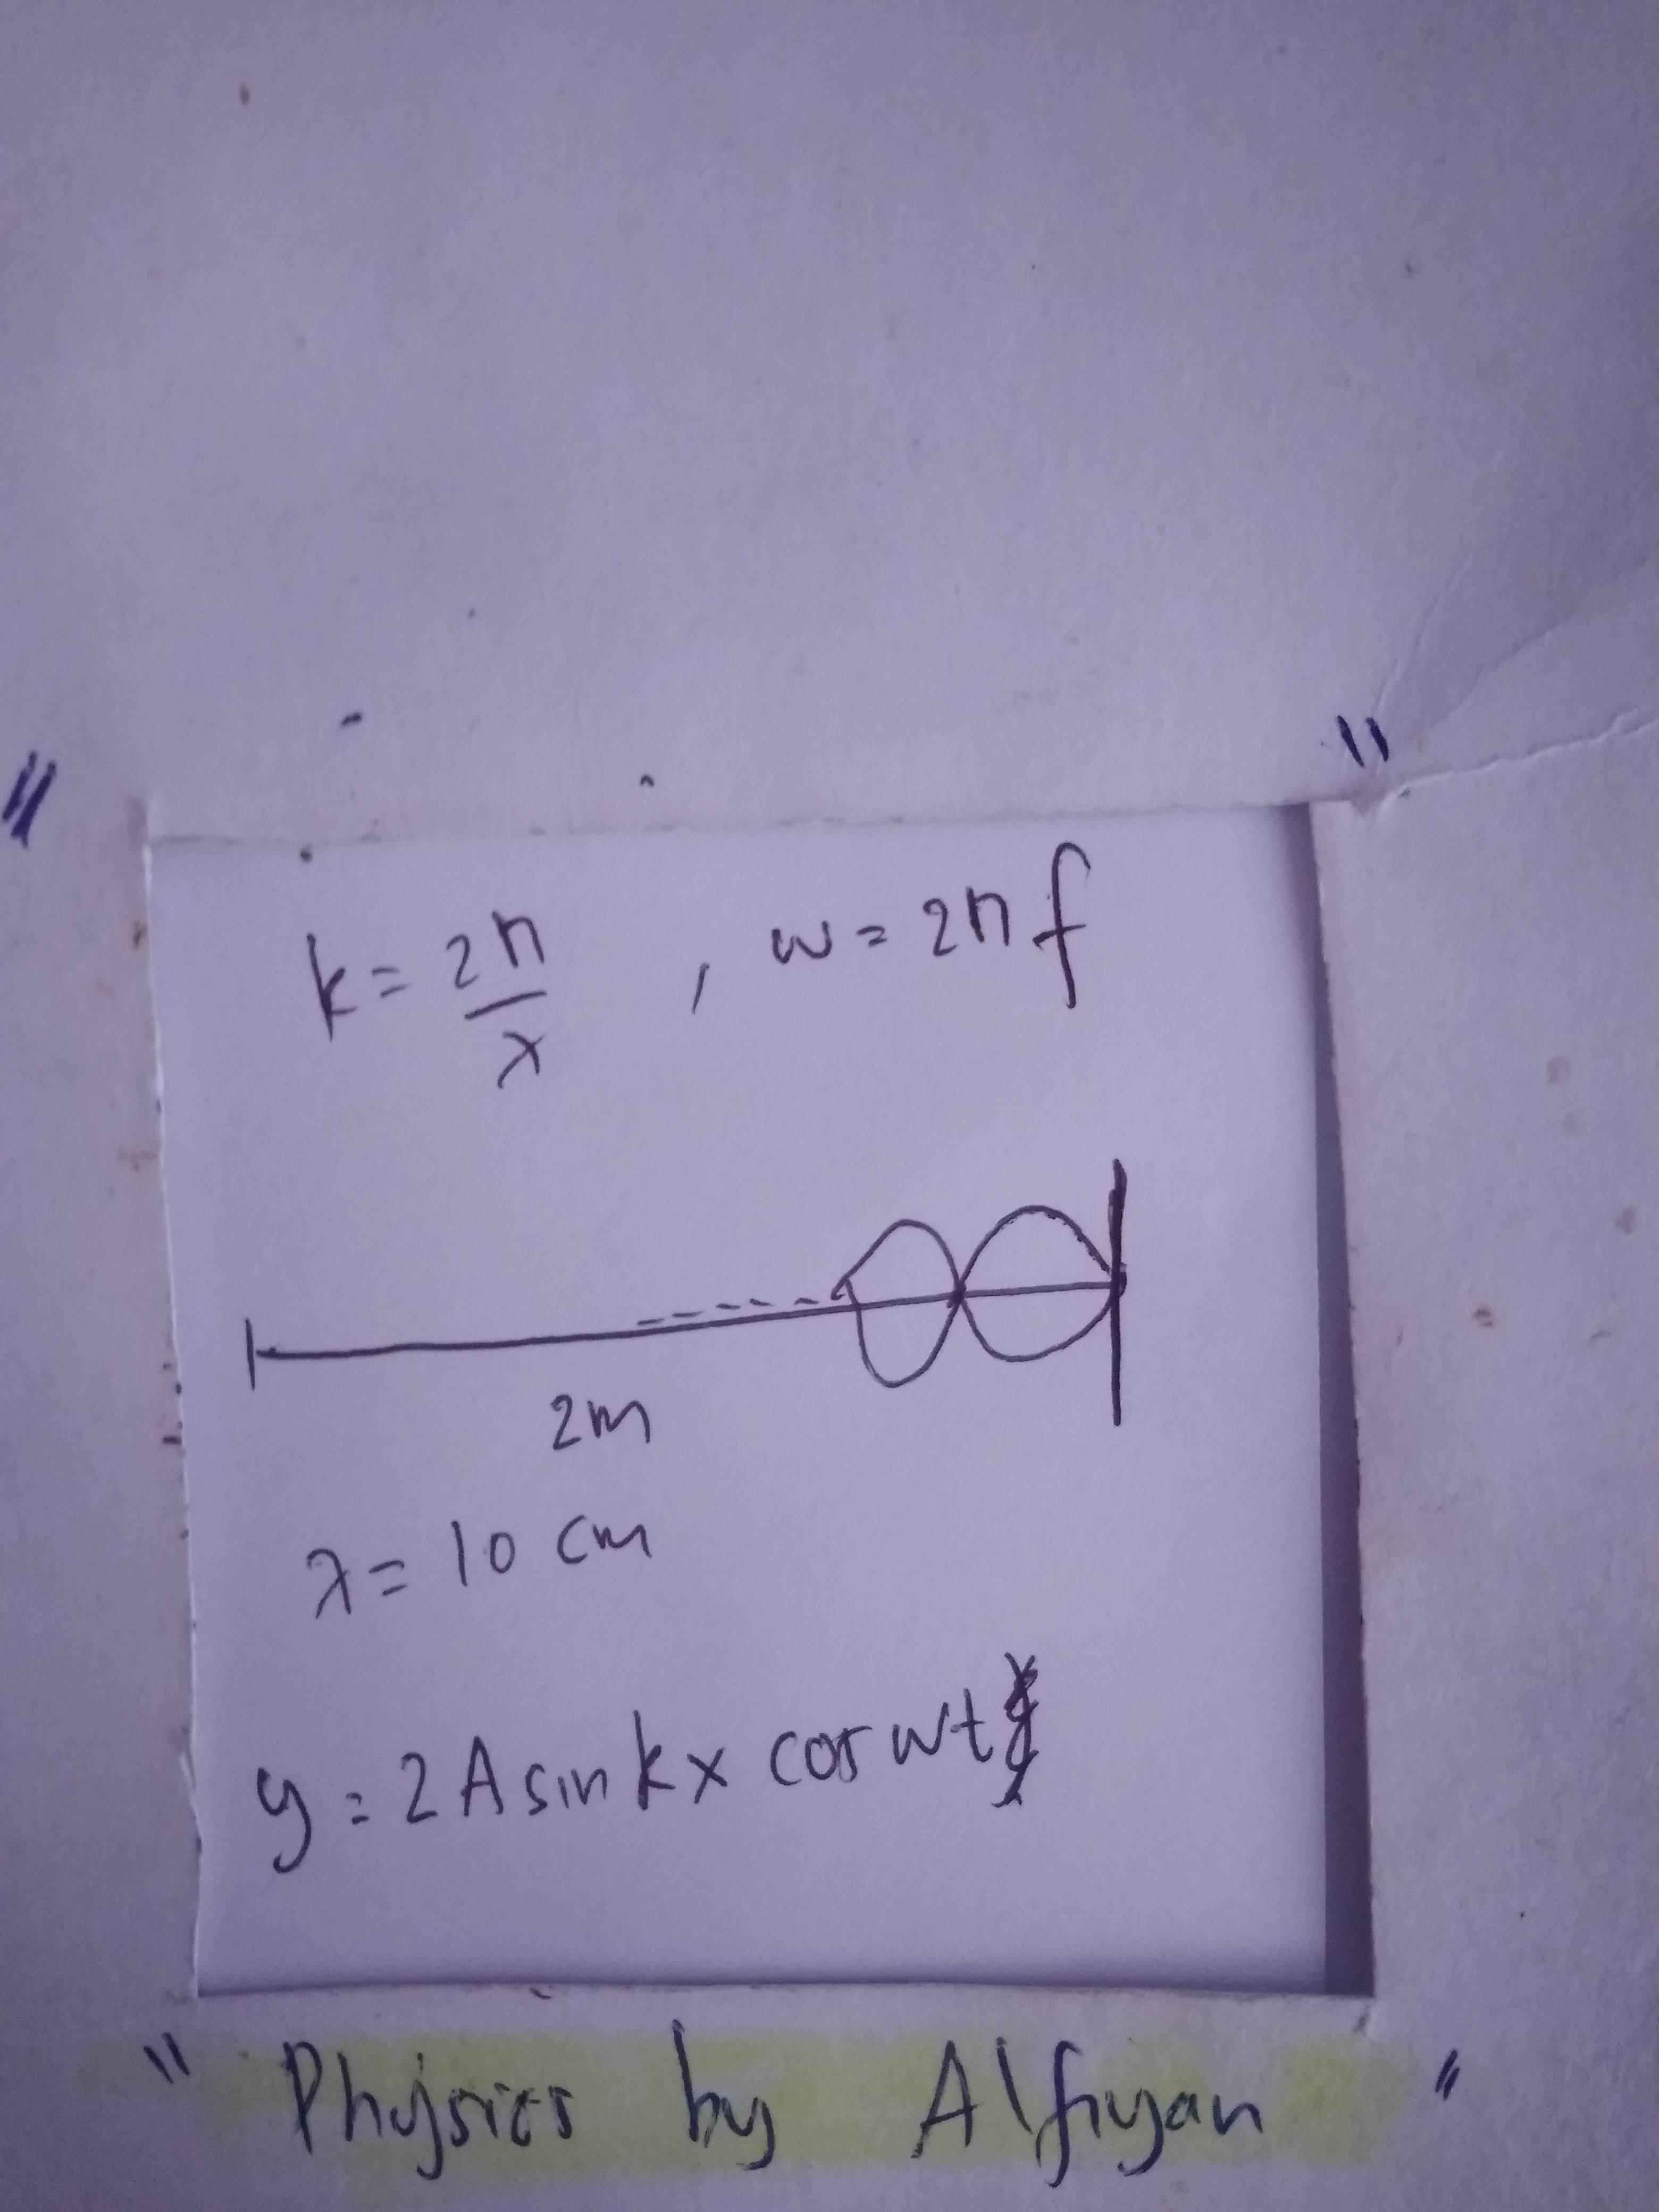 "
"
k = 2π/λ , w = 2πf
2m
λ = 10 cm
y = 2A sin kx cos wt
" Physics by Alfiyan "